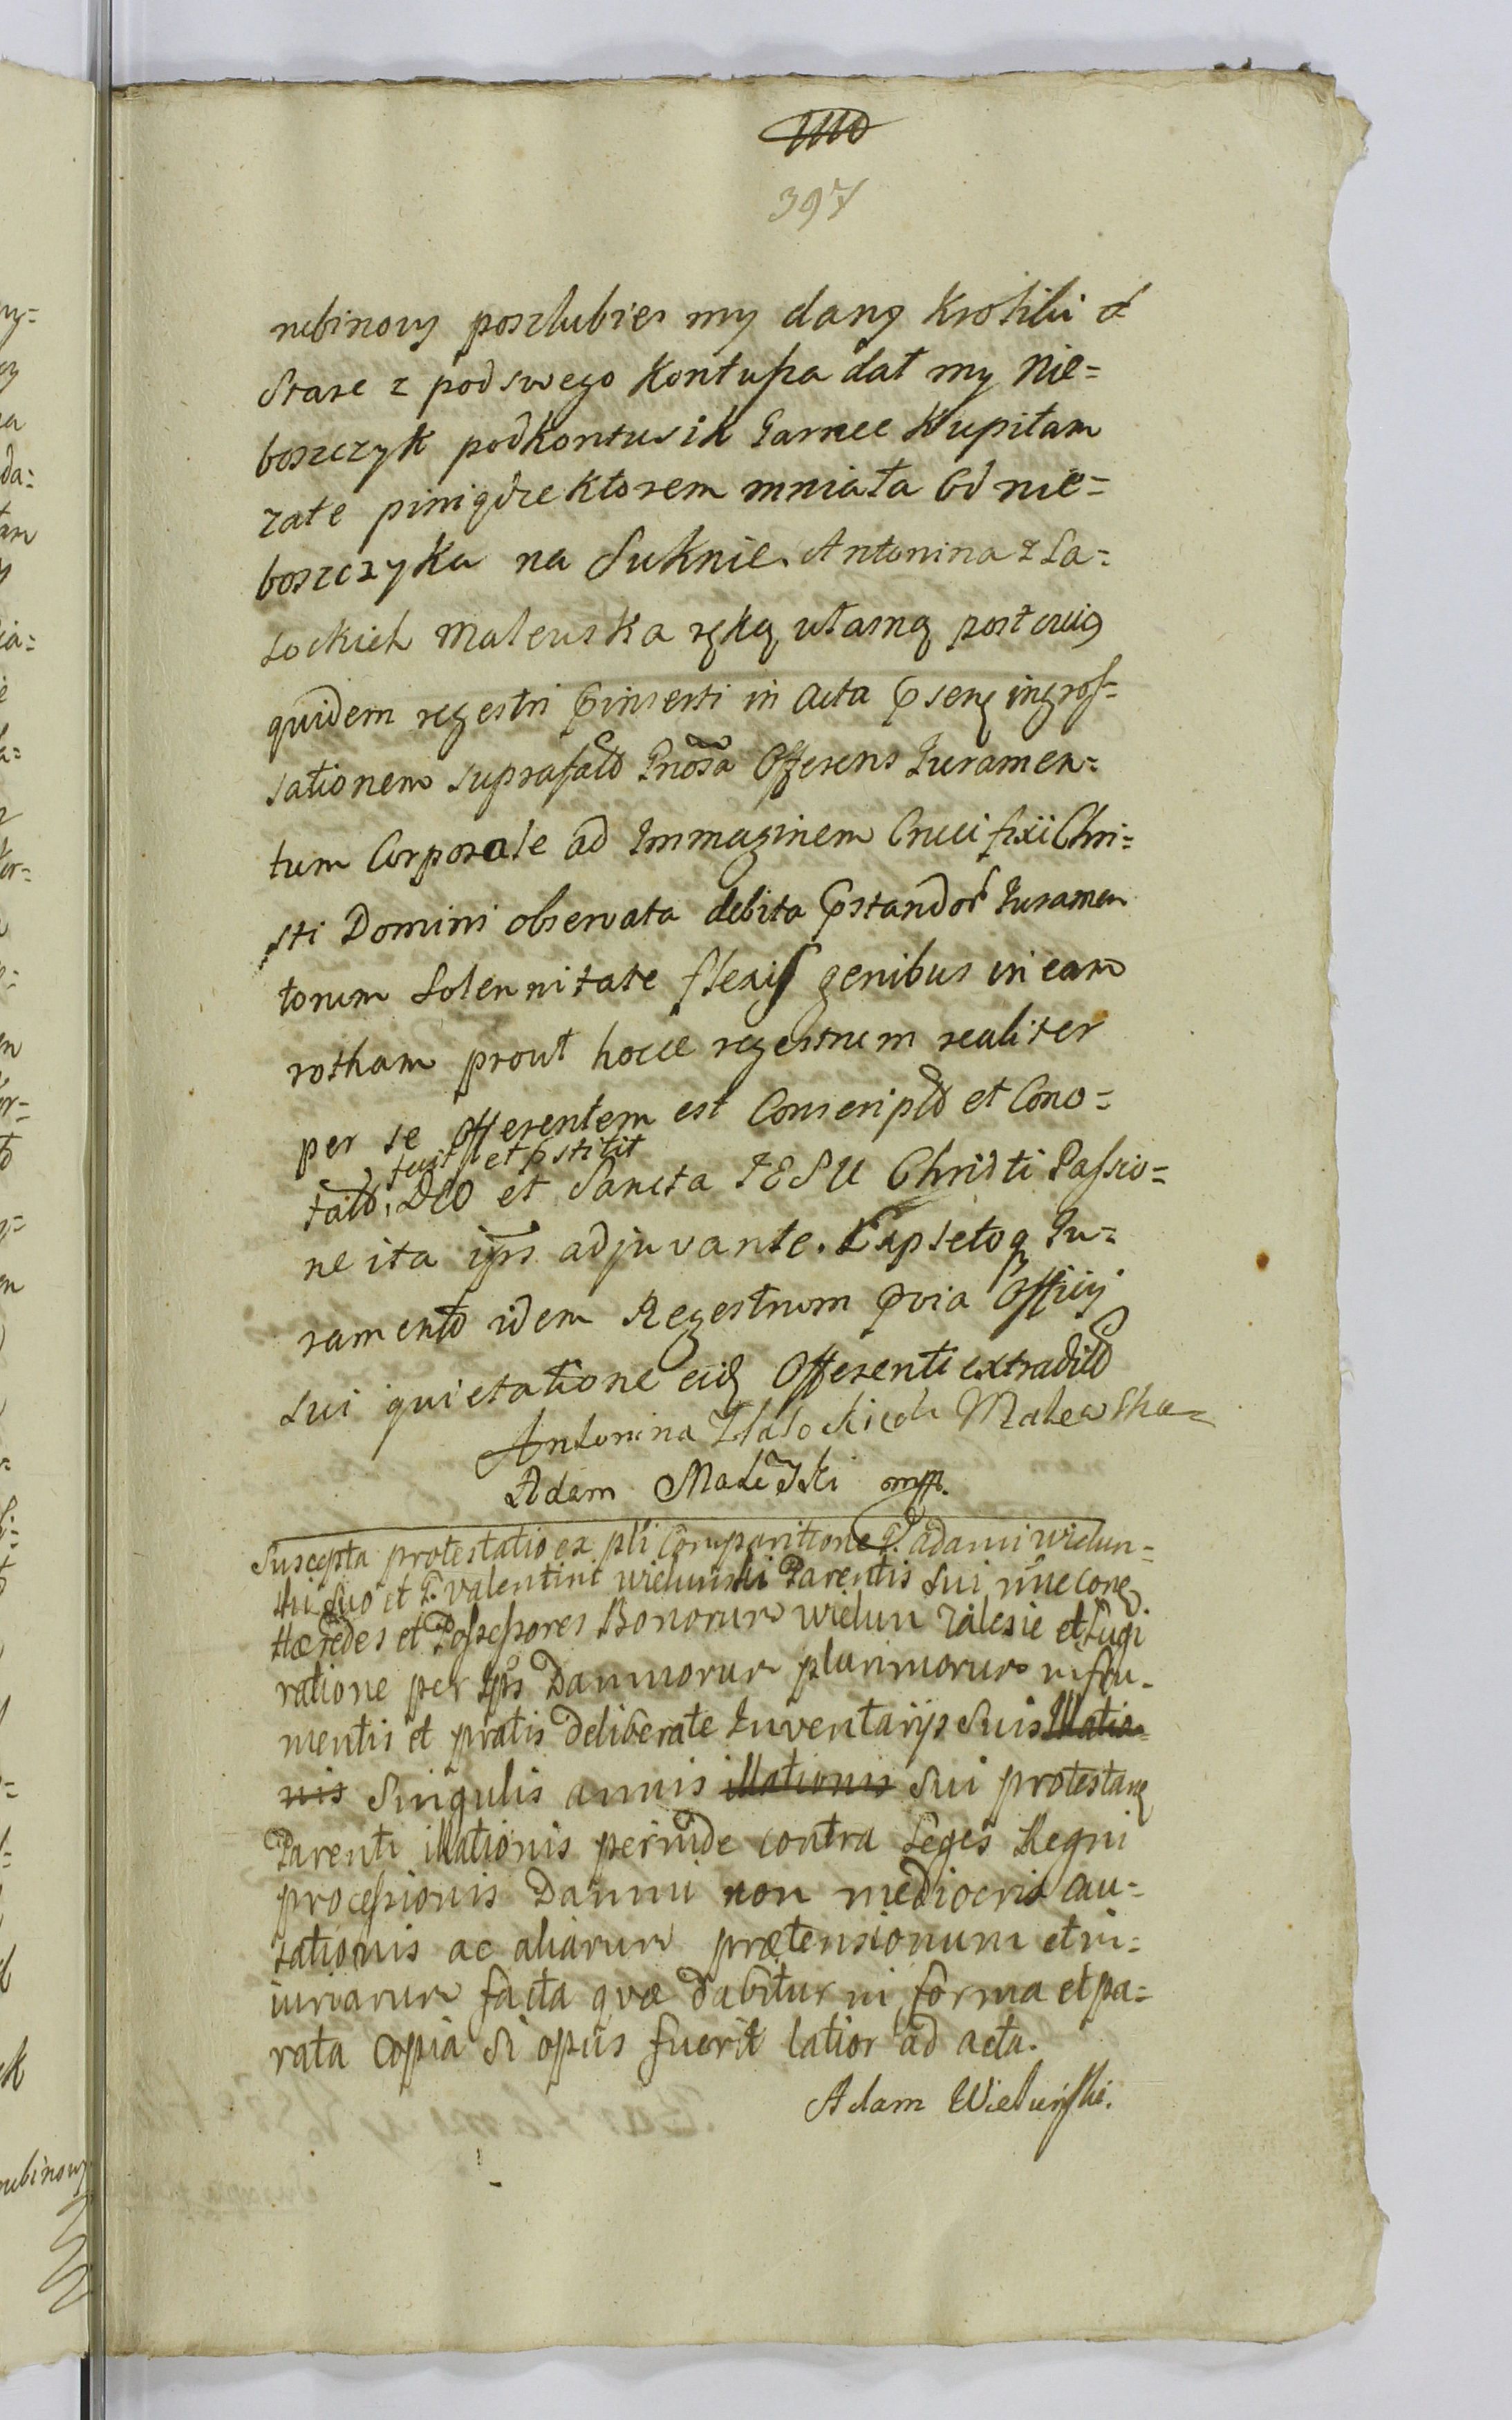 397
rubinowy poszlubie my dany Krotiki d
Stare z pod swego Kontusza dał my Nie=
boszczyk podkontusik Jarnee Kupiłam
zate piniądze Ktorem mniała Od nie=
boszczyka na Suknie. Antonina z Za=
lockich Malewska ręką włarną post cuiq
quidem regestri pinserti in acta pseng ingros=
sationem suprafatd Gnosa Offerens Juramen=
tum Corporale ad Immaginem Crucifixi Chri=
sti Domini observata debita pstandor Juramen
torum Solennitate flexis genibus in eam
rotham prout hocce regestrum realiter
per se Offerentem est Conscriptd et Cono=
fecit et pstitit
tatd, DEO et Sancta JESU Christi Passio=
ne ita ips adjuvante. Expletoq Ju=
ramento idem Regestrum pvia Officij
sui quietatione eid Offerenti extraditd
Antonina Załockich Malewska=
Adam Malewski mpp.
Suscepta protestatio ex pli Comparitione G. adami wielun=
ski Suo et G. valentini wielunski Parentis Sui nne cong
Hæredes et Possessores Bonorum wielun Zalesie et Ługi
ratione per Ips Damnorum plurimorum in fru-
mentis et pratis deliberate Inventarijs Suis Illatio-
nis Singulis annis illationis sui protestang
Parenti illationis perinde contra Leges Regni
processionis Damni non mediocris cau=
sationis ac aliarum prætensionum et in=
iuriarum facta qvæ dabitur in forma et pa=
rata Copia Si opus fuerit latior ad acta.
Adam Wieluński.